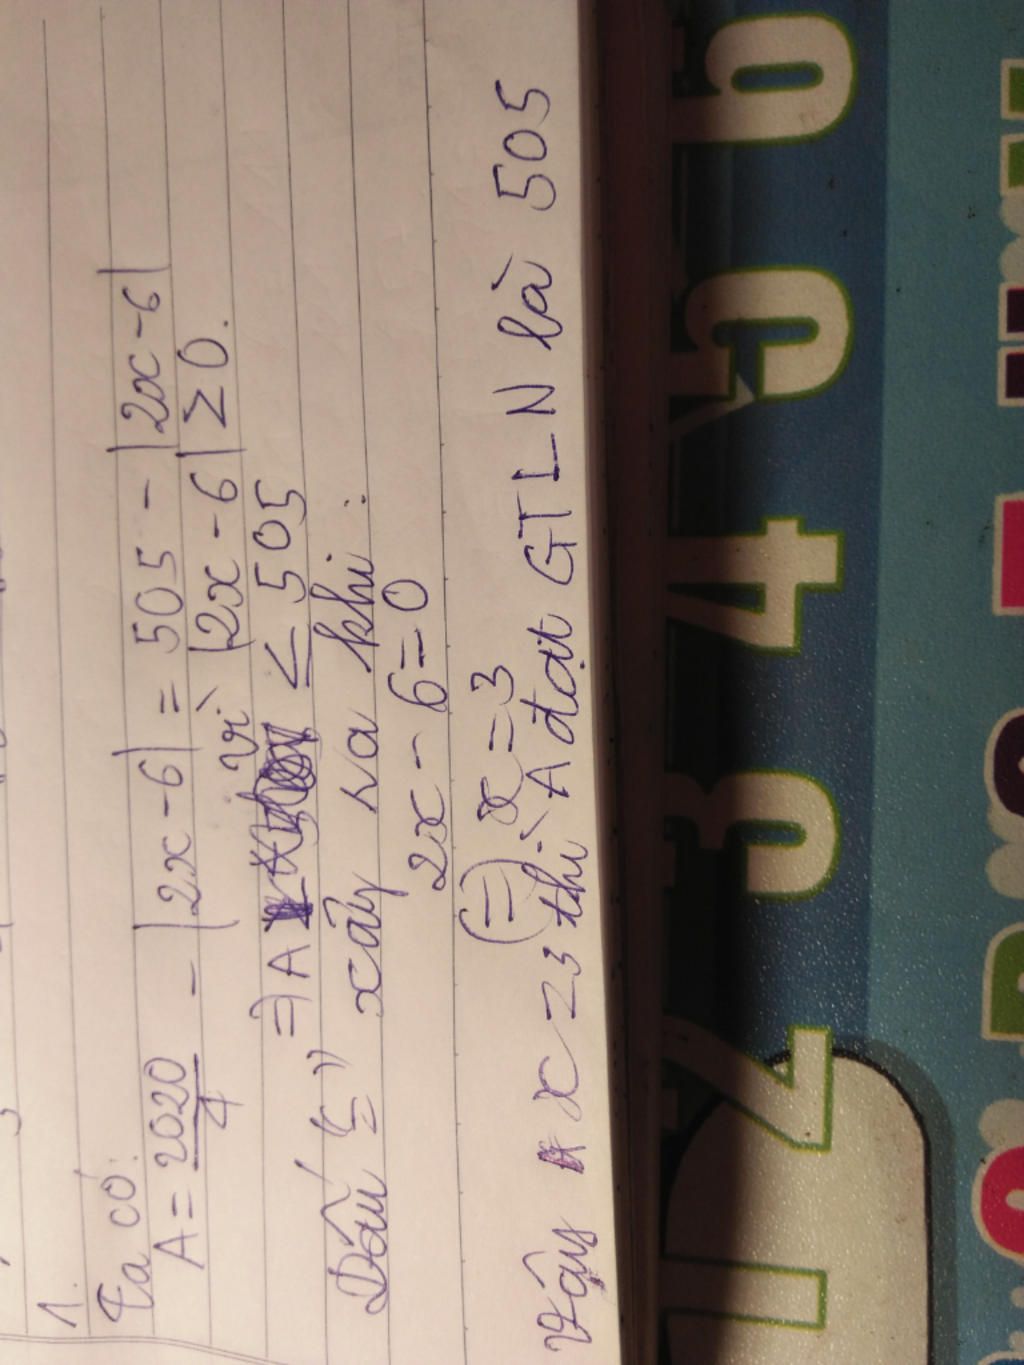 1.
Ta có:
A = 2020/4 - |2x-6| = 505 - |2x-6|
vì |2x-6| ≥ 0.
=) A ≤ 505
Dấu "=" xảy ra khi:
2x - 6 = 0
(=) x = 3
Vậy x = 3 thì A đạt GTLN là 505
1 2 3 4 5 6